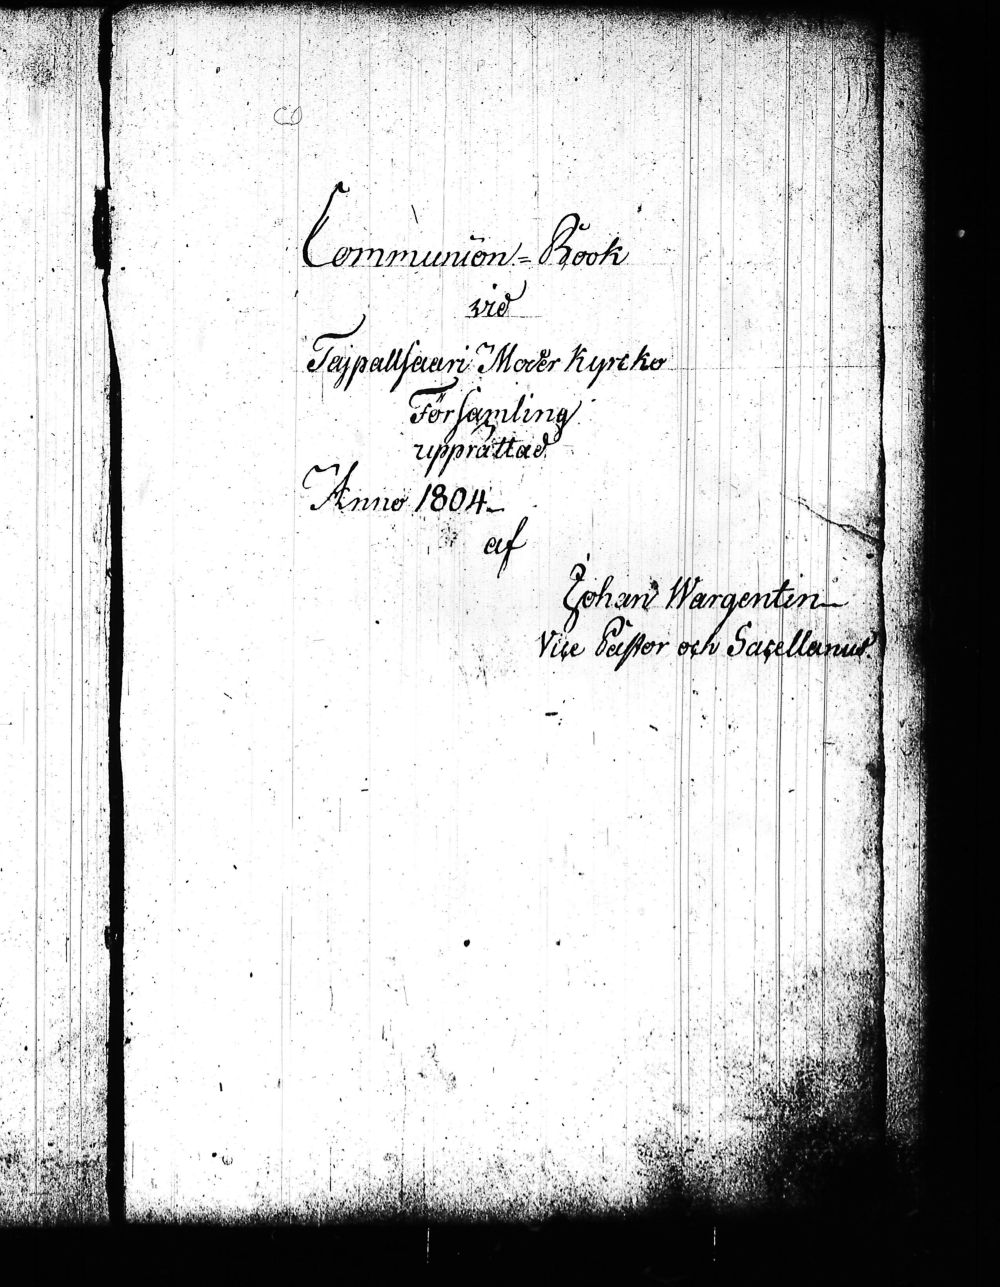 Communion=Book
vid
Tajpallsaari Moder Kyrcko
Församling
upprättad
Anno 1804
af
Johan Wargentin
Vice Pastor och Sacellanus.